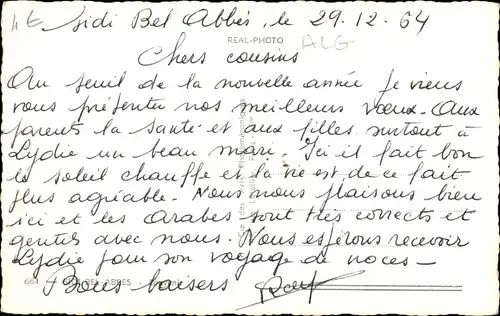 Sidi Bel Abbés, le 29.12.64
REAL-PHOTO
ALG
Chers cousins
Au seuil de la nouvelle année je viens
vous présenter nos meilleurs vœux. Aux
parents la santé et aux filles surtout à
Lydie un beau mari. Ici il fait bon
le soleil chauffe et la vie est de ce fait
plus agréable. Nous nous plaisons bien
ici et les Arabes sont très corrects et
gentils avec nous. Nous espérons recevoir
Lydie pour son voyage de noces -
BEL-ABBES
Bons baisers